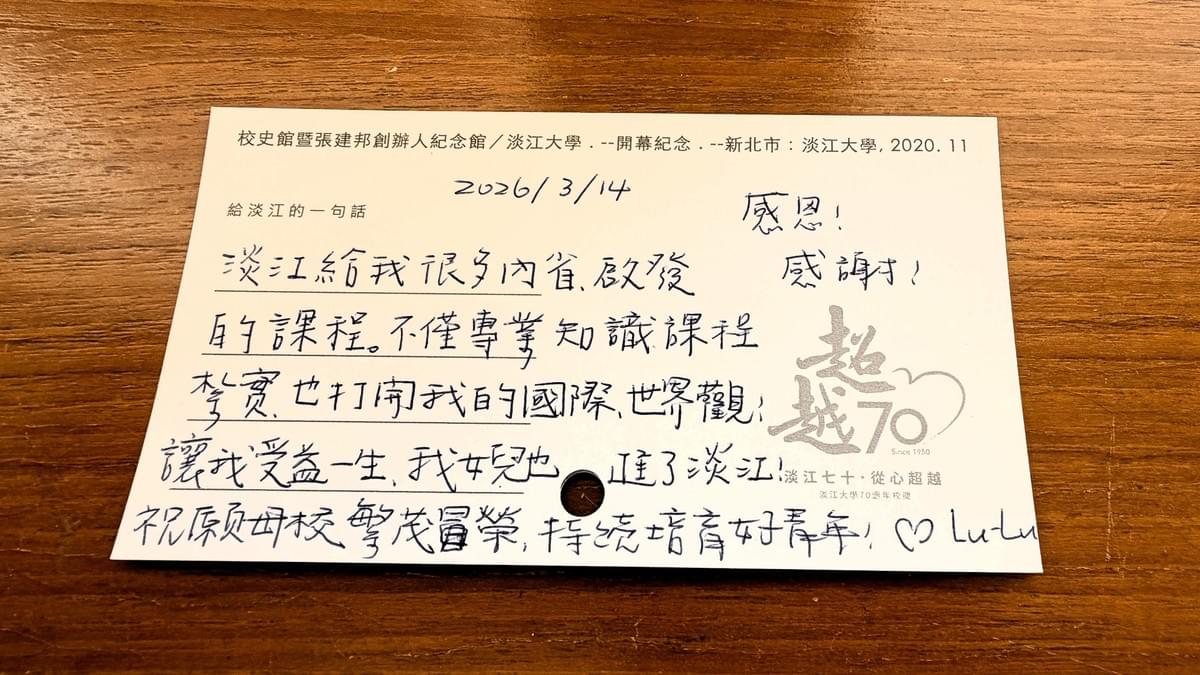 校史館暨張建邦創辦人紀念館／淡江大學．--開幕紀念．--新北市：淡江大學, 2020. 11
2026/3/14
給淡江的一句話
感恩！
感謝！
淡江給我很多內省、啟發
的課程。不僅專業知識課程
紮實、也打開我的國際、世界觀！
讓我受益一生、我女兒也進了淡江！
祝願母校繁茂昌榮，持續培育好青年！♡ Lu-Lu
超越70
Since 1950
淡江七十・從心超越
淡江大學70週年校慶